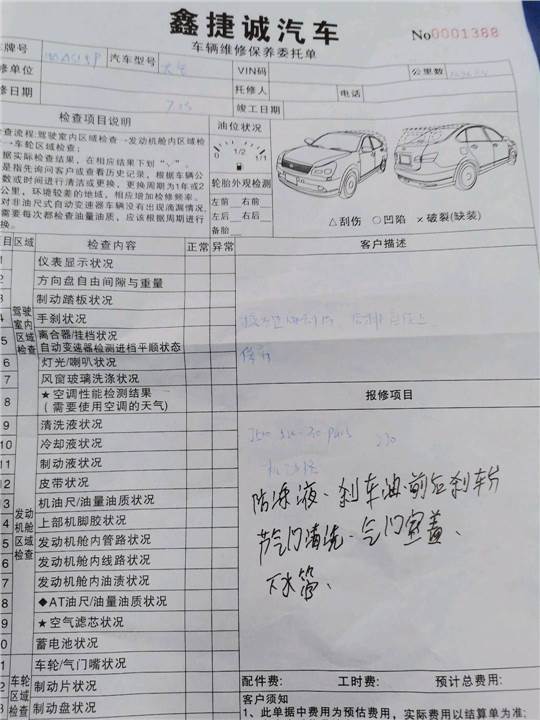 鑫捷诚汽车
车辆维修保养委托单
No0001388
牌号 汽车型号
修单位 VIN码 公里数
修日期 托修人 电话
竣工日期
检查项目说明
查流程:驾驶室内区域检查→发动机舱内区域检查
→车轮区域检查;
据实际检查结果,在相应结果下划“√”。
是指先询问客户或查看历史记录,根据车辆公
数或时间进行清洁或更换,更换周期为1年或2
公里,环境较差的地域,相应增加检修频率。
对非油尺式自动变速器车辆没有出现滴漏情况,
需要每次都检查油量油质,应该根据周期进行
换。
油位状况
0 1/2 1/1
轮胎外观检测
左前 右前
左后 右后
备胎
△刮伤 ○凹陷 ×破裂(缺装)
目 区域 检查内容 正常 异常 客户描述
驾驶室内区域检查
1 仪表显示状况
2 方向盘自由间隙与重量
3 制动踏板状况
4 手刹状况
5 离合器/挂档状况
自动变速器检测进档平顺状态
6 灯光/喇叭状况
7 风窗玻璃洗涤状况
8 ★空调性能检测结果
(需要使用空调的天气)
报修项目
发动机舱区域检查
9 清洗液状况
0 冷却液状况
1 制动液状况
2 皮带状况
3 机油尺/油量油质状况
4 上部机脚胶状况
5 发动机舱内管路状况
6 发动机舱内线路状况
7 发动机舱内油渍状况
8 ◆AT油尺/油量油质状况
9 ★空气滤芯状况
0 蓄电池状况
防冻液、刹车油、前后刹车片
节气门清洗、气门室盖、
下水管、
车轮区域检查
1 车轮/气门嘴状况
2 制动片状况
3 制动盘状况
配件费: 工时费: 预计总费用:
客户须知
1、此单据中费用为预估费用,实际费用以结算单为准